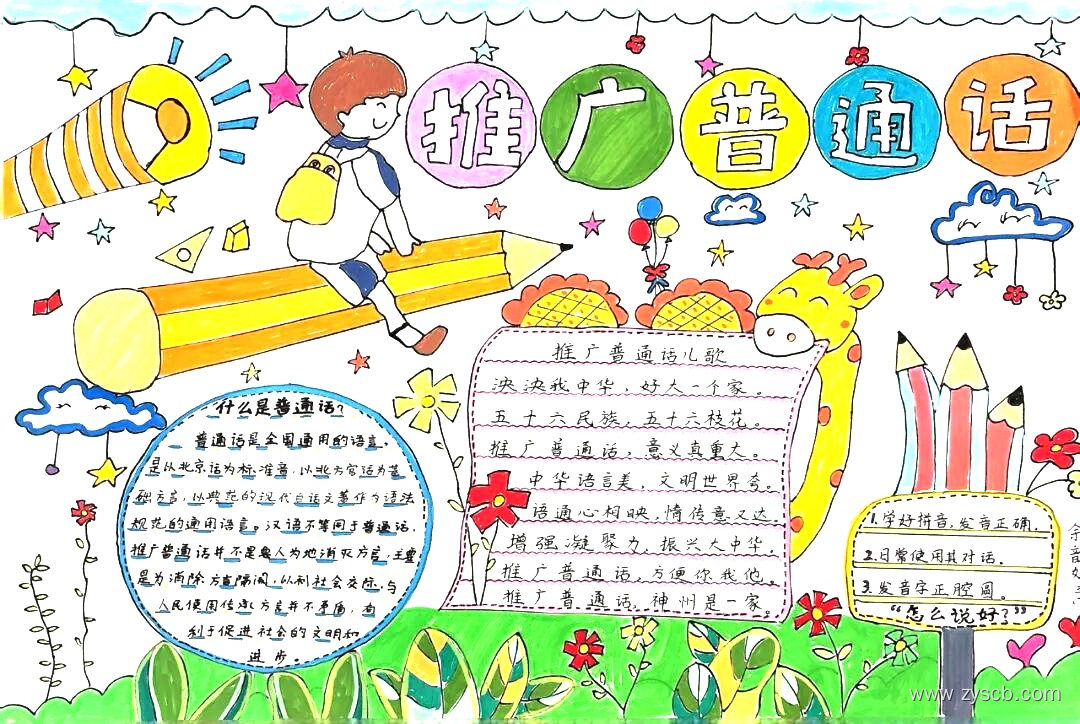 推广普通话
什么是普通话?
普通话是全国通用的语言,
是以北京话为标准音,以北方官话为基
础方言,以典范的现代白话文著作为语法
规范的通用语言。汉语不等同于普通话,
推广普通话并不是要人为地消灭方言,主要
是为消除方言隔阂,以利社会交际,与
人民使用传承方言并不矛盾,有
利于促进社会的文明和
进步。
推广普通话儿歌
泱泱我中华,好大一个家。
五十六民族,五十六枝花。
推广普通话,意义真重大。
中华语言美,文明世界夸。
语通心相映,情传意又达
增强凝聚力,振兴大中华。
推广普通话,方便你我他。
推广普通话,神州是一家。
1.学好拼音,发音正确.
2.日常使用其对话.
3.发音字正腔圆。
“怎么说好?”
www.zyscb.com